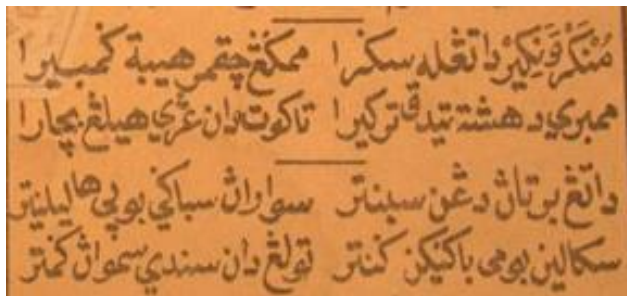 مُنْكَرْ وَنَكِيْرْ داتڠله سكرا ممكڠ چقمر هيبة كمبيرا
ممبري دهشة تيدق تركيرا تاكوت دان ڠري هيلڠ بچارا
داتڠ برتاڽ دڠن سبنتر سواراڽ سباكي بوڽي هاليلينتر
سكالين بومي باكيكن كنتر تولڠ دان سندي سمواڽ كمنتر